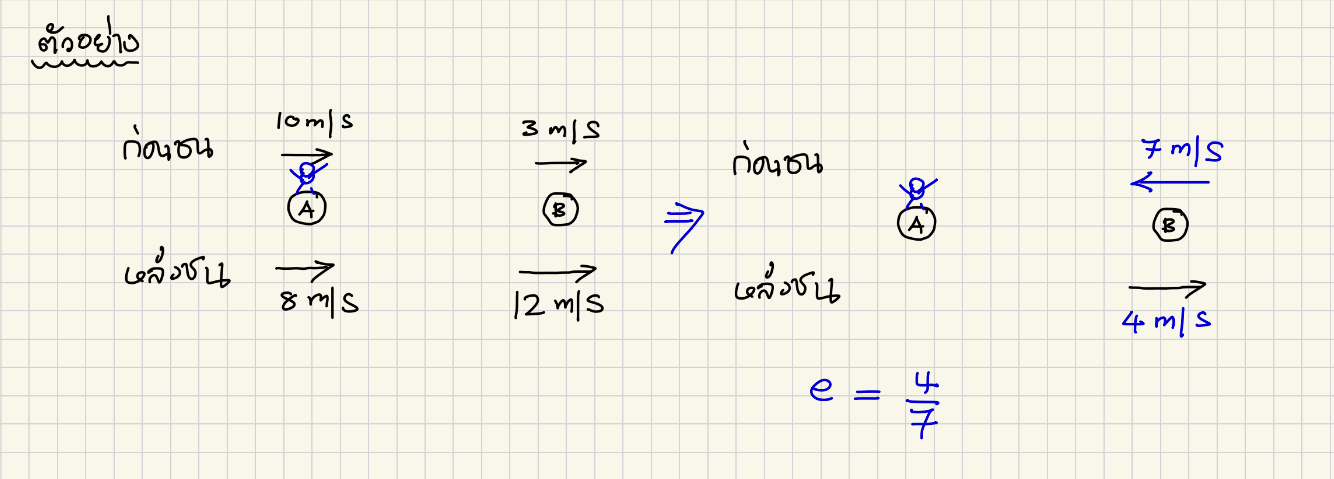 ตัวอย่าง
ก่อนชน 10 m/s 3 m/s
A B
หลังชน 8 m/s 12 m/s
⇒
ก่อนชน 7 m/s
A B
หลังชน 4 m/s
e = 4/7